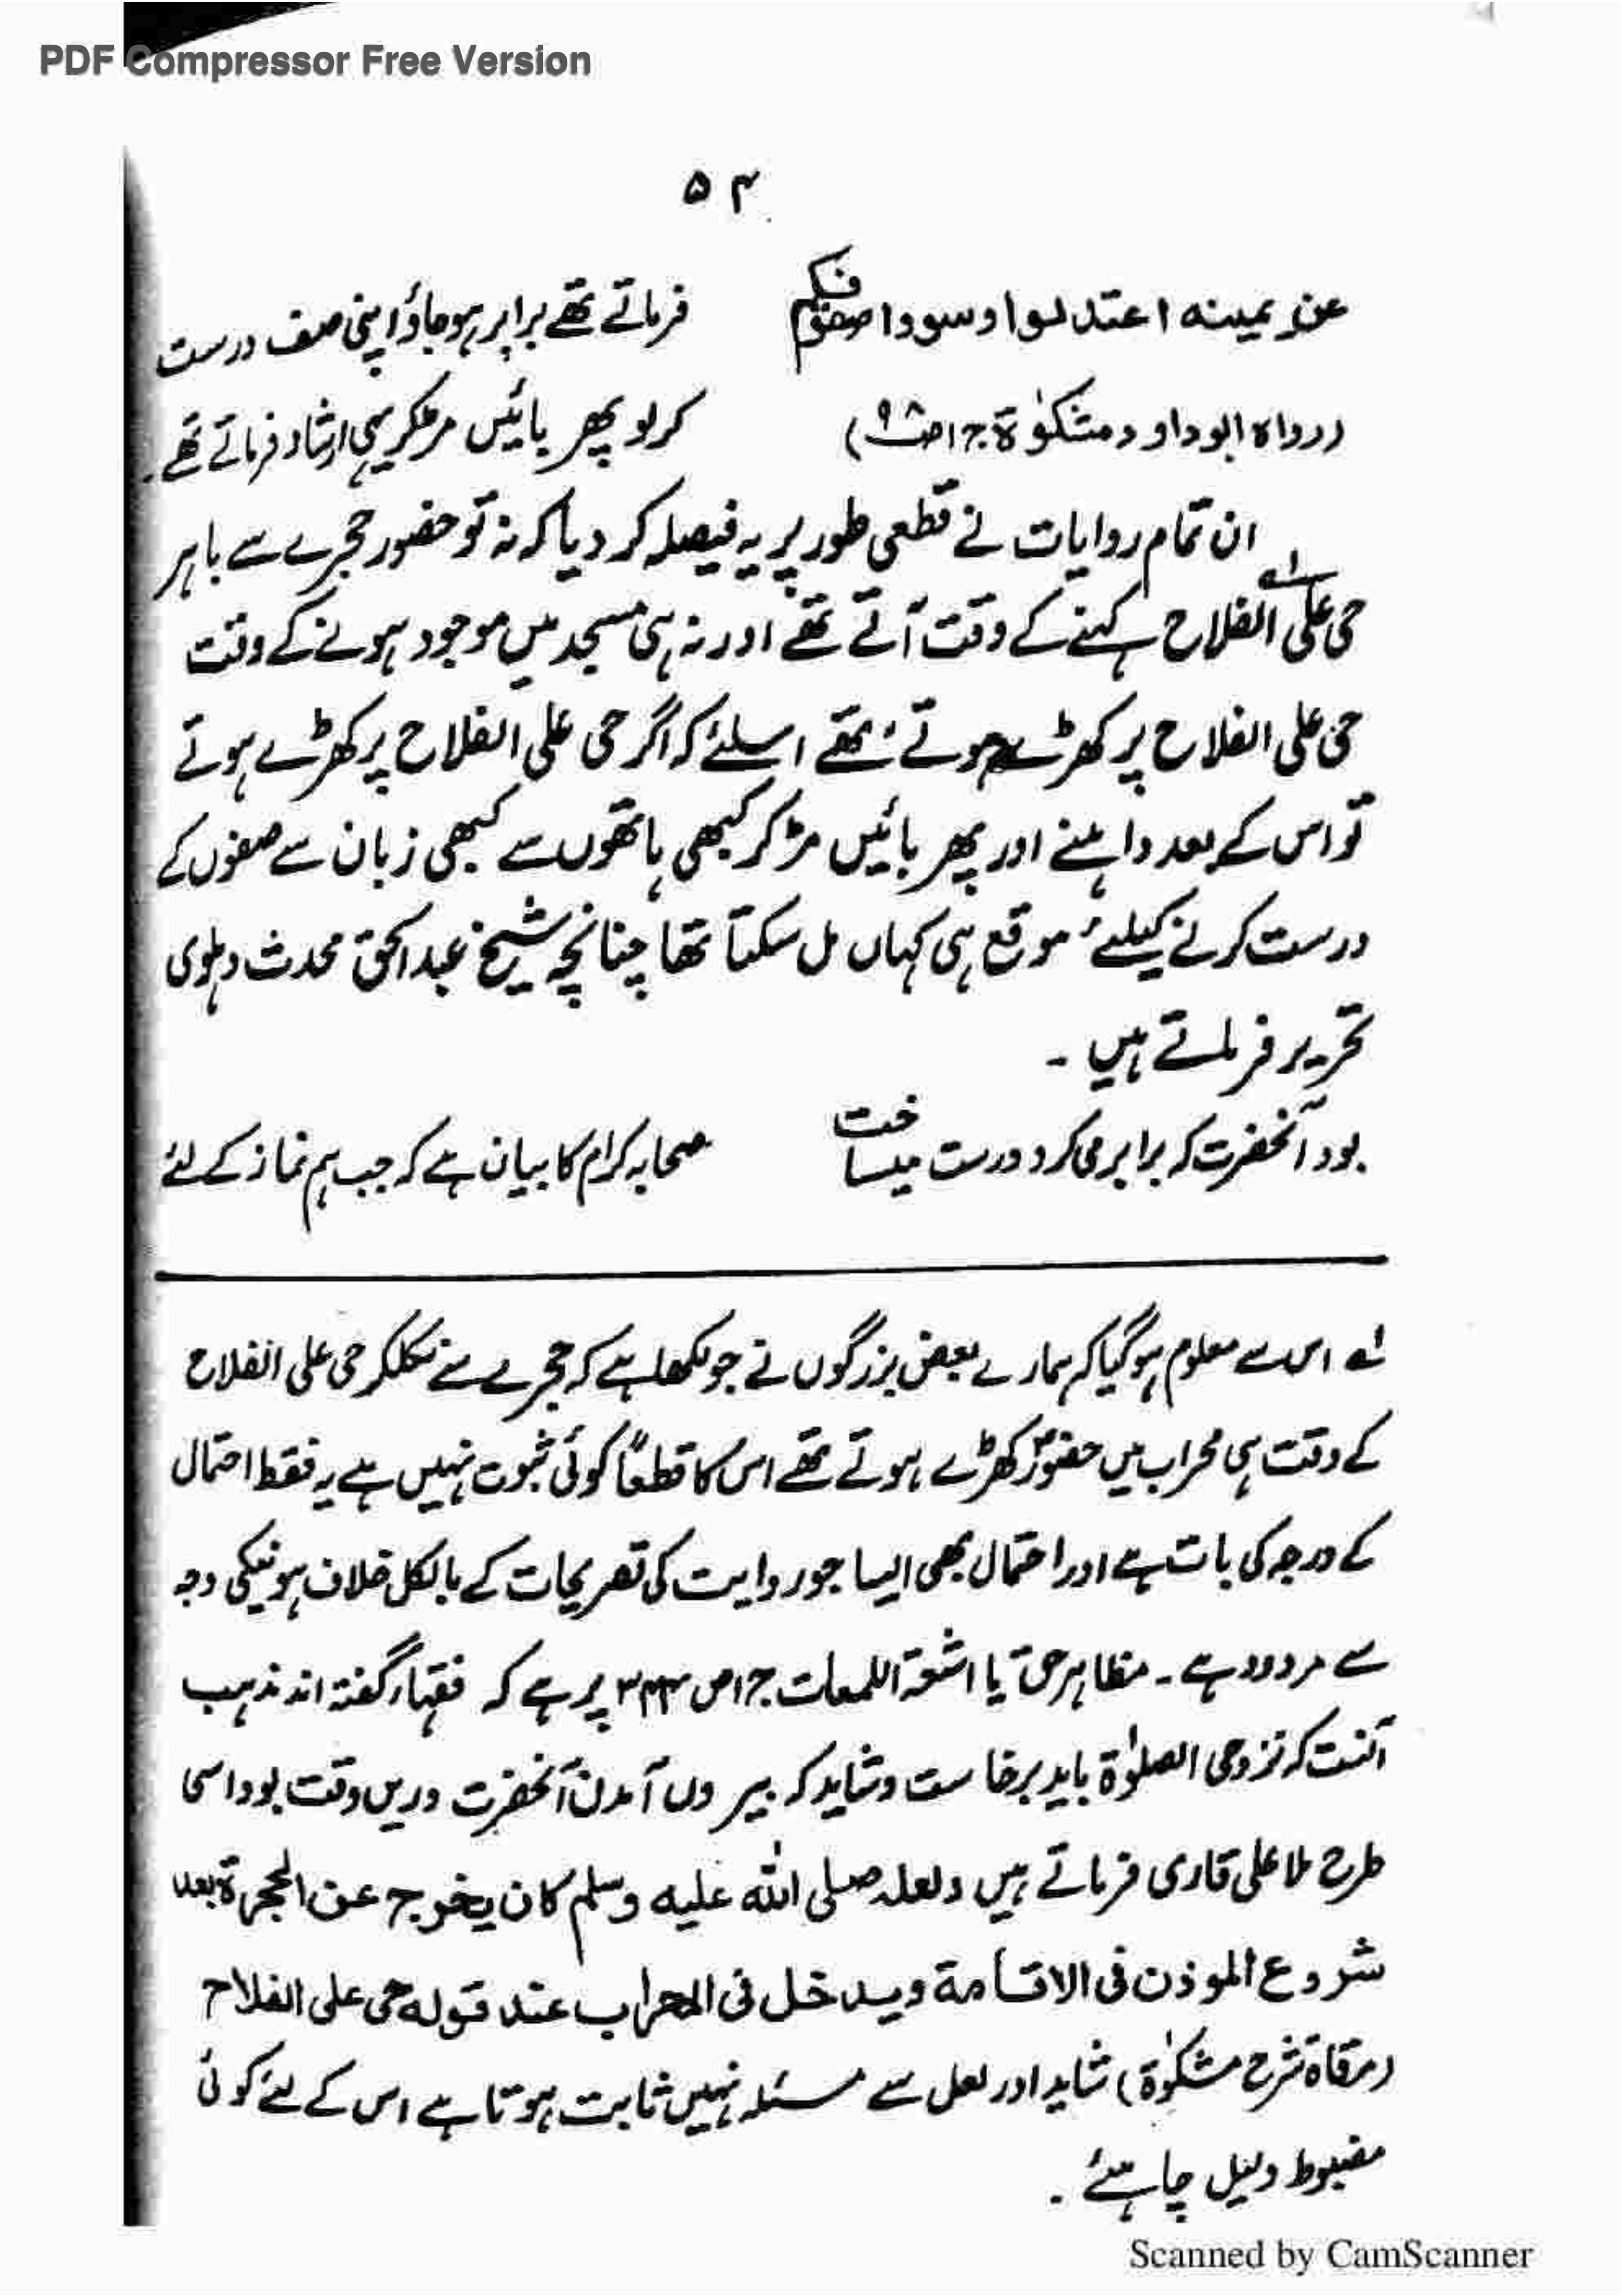 PDF Compressor Free Version
۵۴
عن يمينه اعتدلوا وسووا صفوفكم
فرماتے تھے برابر ہو جاؤ اپنی صف درست
(رواہ ابو داود مشکوٰۃ ج۱ ص۹۸)
کر لو پھر بائیں مڑ کر یہی ارشاد فرماتے تھے۔
ان تمام روایات نے قطعی طور پر یہ فیصلہ کر دیا کہ نہ تو حضور حجرے سے باہر
حی علی الفلاح کہنے کے وقت آتے تھے اور نہ ہی مسجد میں موجود ہونے کے وقت
حی علی الفلاح پر کھڑے ہوتے تھے اسلئے کہ اگر حی علی الفلاح پر کھڑے ہوتے
تو اس کے بعد داہنے اور پھر بائیں مڑ کر کبھی ہاتھوں سے کبھی زبان سے صفوں کے
درست کرنے کیلئے موقع ہی کہاں مل سکتا تھا چنانچہ شیخ عبد الحق محدث دہلوی
تحریر فرماتے ہیں ۔
بود آنحضرت کہ برابر می کرد و درست میساخت
صحابہ کرام کا بیان ہے کہ جب ہم نماز کے لئے
لہ اس سے معلوم ہو گیا کہ ہمارے بعض بزرگوں نے جو لکھا ہے کہ حجرے سے نکلکر حی علی الفلاح
کے وقت ہی محراب میں حضورؐ کھڑے ہوتے تھے اس کا قطعاً کوئی ثبوت نہیں ہے یہ فقط احتمال
کے درجہ کی بات ہے اور احتمال بھی ایسا جو روایت کی تصریحات کے بالکل خلاف ہونیکی وجہ
سے مردود ہے ۔ مظاہر حق یا اشعۃ اللمعات ج۱ ص ۳۴۳ پر ہے کہ فقہاء گفتہ اند مذہب
آنست کہ نزد حی الصلوٰۃ باید برخاست و شاید کہ بیروں آمدن آنحضرت دریں وقت بود اسی
طرح ملا علی قاری فرماتے ہیں ولعله صلى الله عليه وسلم كان يخرج عن الحجرة بعد
شروع الموذن فى الاقامة ويدخل فى المحراب عند قوله حى على الفلاح
(مرقاۃ شرح مشکوٰۃ) شاید اور لعل سے مسئلہ نہیں ثابت ہوتا ہے اس کے لئے کوئی
مضبوط دلیل چاہئے ۔
Scanned by CamScanner